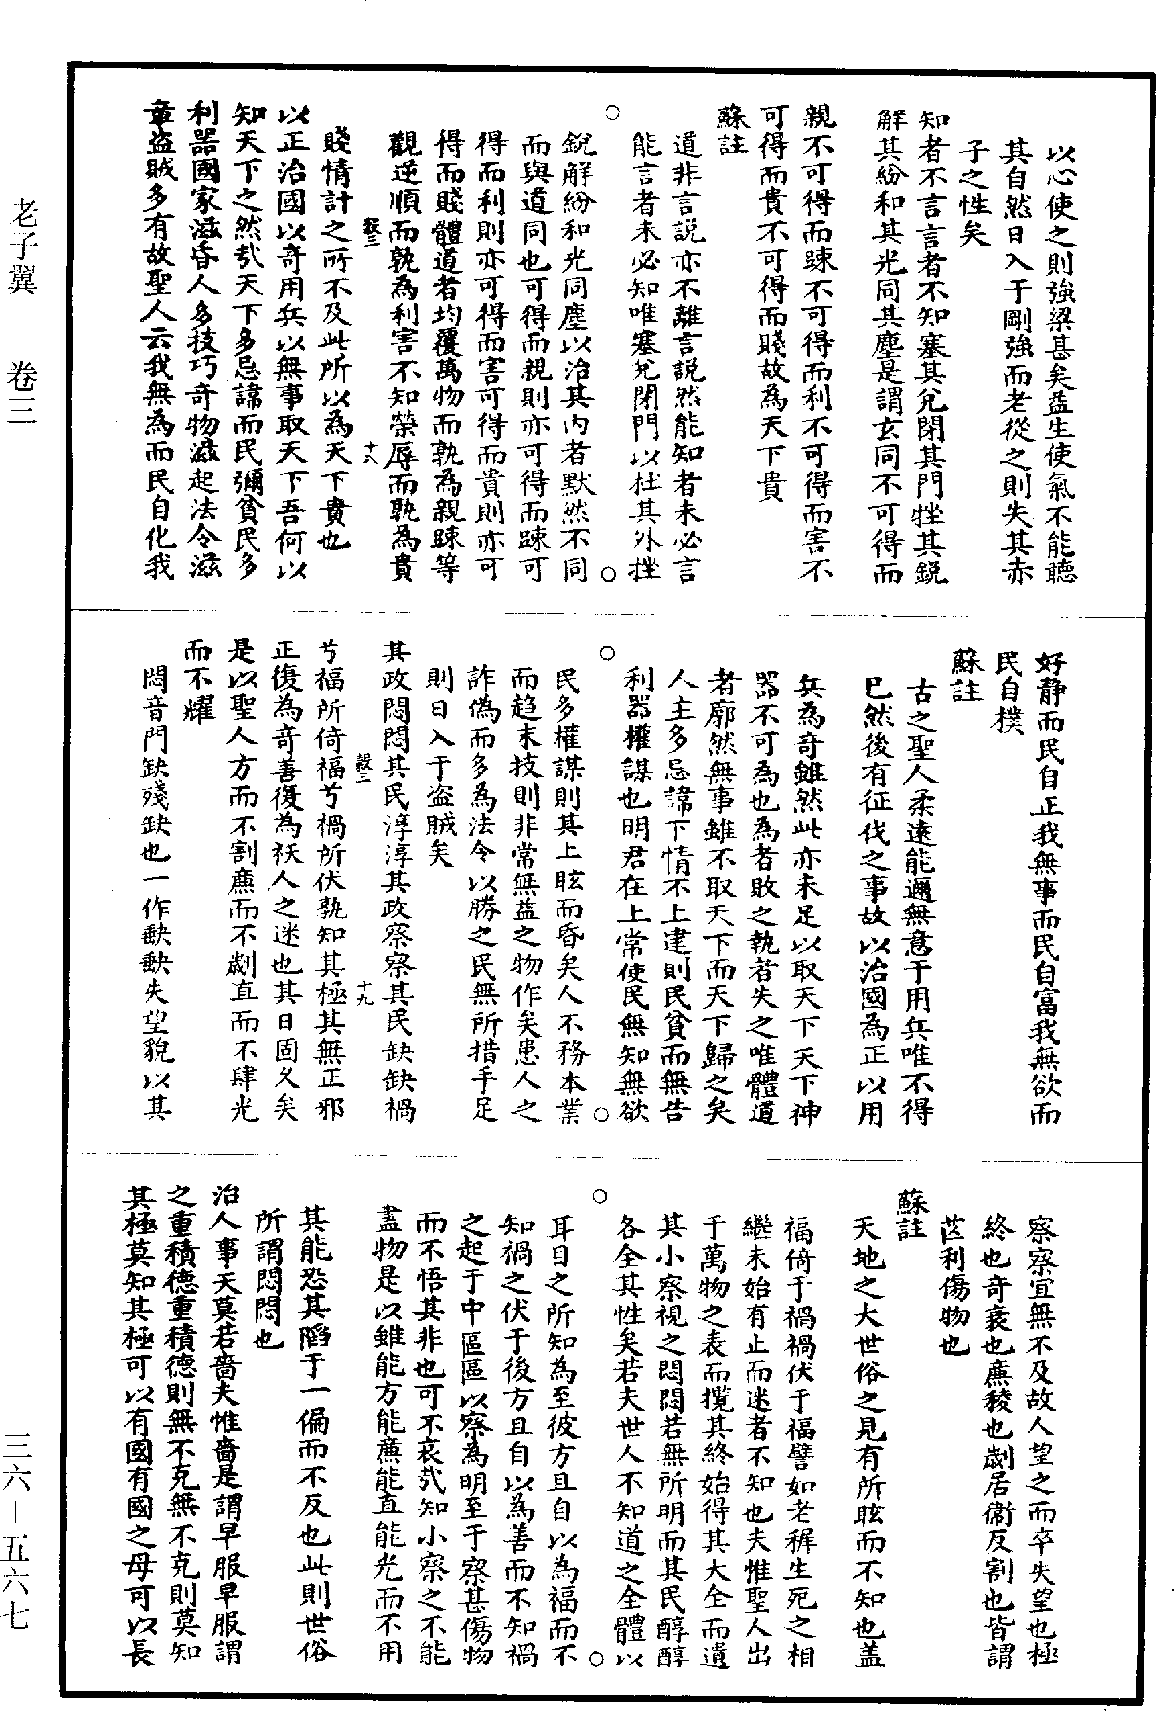 以心使之則強梁甚矣益生使氣不能聽
其自然日入于剛強而老從之則失其赤
子之性矣
知者不言言者不知塞其兌閉其門挫其銳
解其紛和其光同其塵是謂玄同不可得而
親不可得而踈不可得而利不可得而害不
可得而貴不可得而賤故為天下貴
蘇註
道非言説亦不離言説然能知者未必言
能言者未必知唯塞兌閉門以杜其外挫
銳解紛和光同塵以治其內者默然不同
而與道同也可得而親則亦可得而踈可
得而利則亦可得而害可得而貴則亦可
得而賤體道者均覆萬物而孰為親踈等
觀逆順而孰為利害不知榮辱而孰為貴
殺三 十八
賤情計之所不及此所以為天下貴也
以正治國以奇用兵以無事取天下吾何以
知天下之然哉天下多忌諱而民彌貧民多
利器國家滋昏人多技巧奇物滋起法令滋
章盜賊多有故聖人云我無為而民自化我
好靜而民自正我無事而民自富我無欲而
民自樸
蘇註
古之聖人柔遠能邇無意于用兵唯不得
已然後有征伐之事故以治國為正以用
兵為奇雖然此亦未足以取天下天下神
器不可為也為者敗之執者失之唯體道
者廓然無事雖不取天下而天下歸之矣
人主多忌諱下情不上達則民貧而無告
利器權謀也明君在上常使民無知無欲
民多權謀則其上眩而昏矣人不務本業
而趋末技則非常無益之物作矣患人之
詐偽而多為法令以勝之民無所措手足
則日入于盜賊矣
其政悶悶其民淳淳其政察察其民缺缺禍
殺三 十九
兮福所倚福兮禍所伏孰知其極其無正邪
正復為奇善復為袄人之迷也其日固久矣
是以聖人方而不割廉而不劌直而不肆光
而不耀
悶音門缺殘缺也一作䤎䤎失望貌以其
察察宜無不及故人望之而卒失望也極
終也奇衺也廉稜也劌居衞反割也皆謂
芒利傷物也
蘇註
天地之大世俗之見有所眩而不知也盖
福倚于禍禍伏于福譬如老稺生死之相
繼未始有止而迷者不知也夫惟聖人出
于萬物之表而攬其終始得其大全而遺
其小察視之悶悶若無所明而其民醇醇
各全其性矣若夫世人不知道之全體以
耳目之所知為至彼方且自以為福而不
知禍之伏于後方且自以為善而不知禍
之起于中區區以察為明至于察甚傷物
而不悟其非也可不哀哉知小察之不能
盡物是以雖能方能廉能直能光而不用
其能恐其陷于一偏而不反也此則世俗
所謂悶悶也
治人事天莫若嗇夫惟嗇是謂早服早服謂
之重積德重積德則無不克無不克則莫知
其極莫知其極可以有國有國之母可以長
老子翼 卷三
三六—五六七